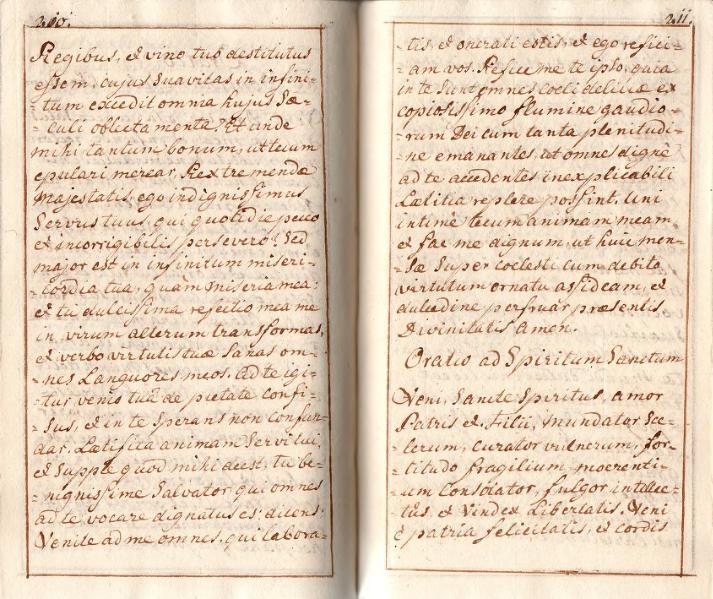 210.
Regibus, et vino tuo destitutus
essem, cujus suavitas in infini-
-tum excedit omnia hujus Sæ-
-culi oblectamenta? Et unde
mihi tantum bonum, ut tecum
epulari merear, Rex tremendæ
Majestatis, ego indignissimus
Servus tuus, qui quotidie pecco
et incorrigibilis persevero? Sed
major est in infinitum miseri-
-cordia tua, quam miseria mea:
et tu dulcissima refectio mea me
in virum alterum transformas,
et verbo virtutis tuæ sanas om-
-nes Languores meos. ad te igi-
-tur venio tuâ de pietate confi-
-sus, et in te Sperans non confun-
dar. Lætifica animam Servi tui,
et Supple quod mihi deest, tu be-
-nignissime Salvator qui omnes
ad te vocare dignatus es: dicens:
Venite ad me omnes, qui labora-
211.
-tis, et onerati estis, et ego refici-
-am vos. Refice me te ipso, quia
in te sunt omnes coeli deliciæ ex
copiosissimo flumine gaudio-
-rum Dei cum tanta plenitudi-
-ne emanantes, ut omnes dignè
ad te accedentes inexplicabili
Lætitia replere possint. Uni
intimè tecum animam meam,
et fac me dignum, ut huic men-
-sæ super coelesti cum debito
virtutum ornatu assideam, et
dulcedine perfruar præsentis
Divinitatis amen.
Oratio ad Spiritum Sanctum
Veni, Sancte Spiritus, amor
Patris et Filii, mundator Sce-
-lerum, curator vulnerum, for-
-titudo fragilium, moerenti-
-um Consolator, fulgor intellec-
-tûs, et Vindex Libertatis. Veni
è patria felicitatis, et cordis